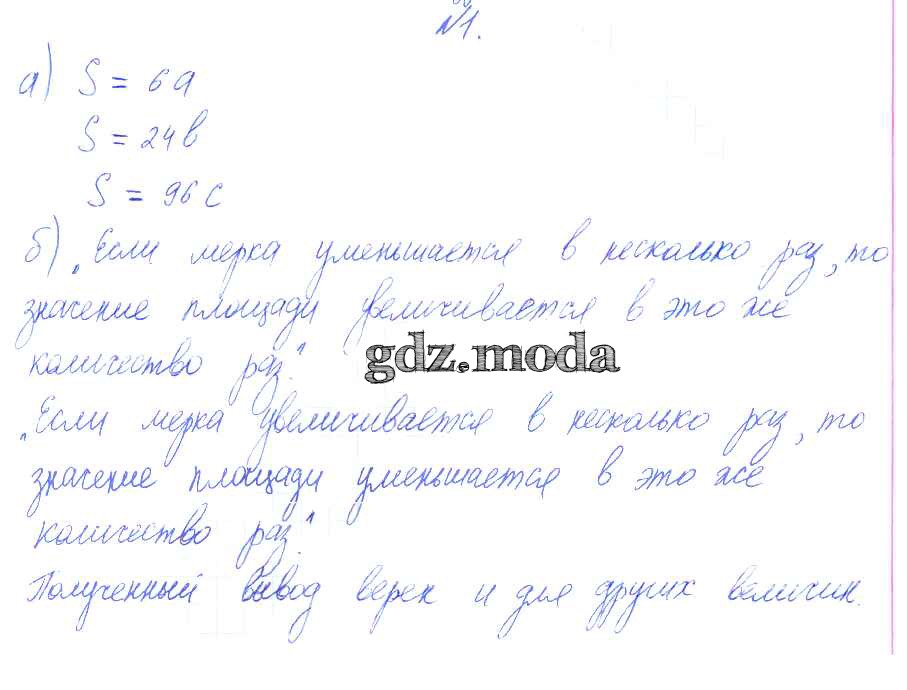 №1.
а) S = 6a
S = 24b
S = 96c
б) „Если мерка уменьшается в несколько раз, то
значение площади увеличивается в это же
количество раз".
gdz.moda
„Если мерка увеличивается в несколько раз, то
значение площади уменьшается в это же
количество раз".
Полученный вывод верен и для других величин.